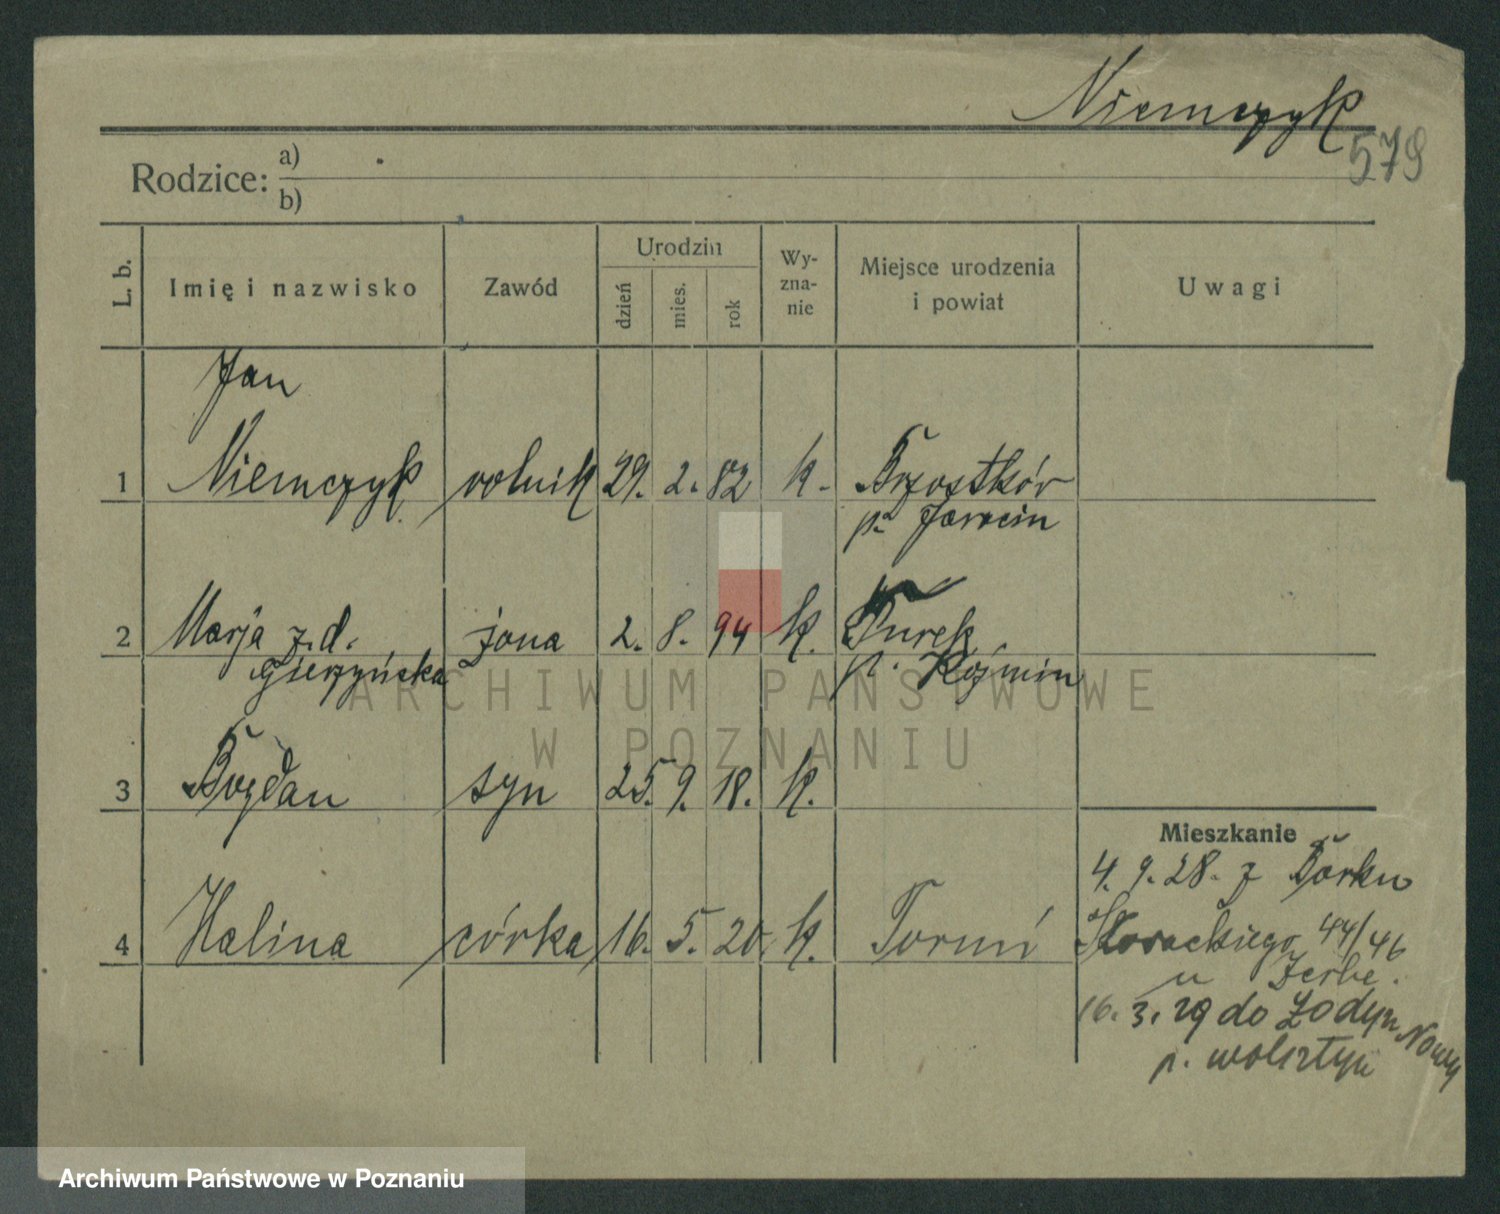 Niemczyk
579
Rodzice: a)
b)
L. b.
Imię i nazwisko
Zawód
Urodzin
dzień
mies.
rok
Wy-
zna-
nie
Miejsce urodzenia
i powiat
Uwagi
Jan
1 Niemczyk rolnik 29. 2. 82 k. Brzostków
p. Jarocin
2 Marja z. d. żona 2. 8. 94 k. Turek
Gierzyńska p. Koźmin
3 Bogdan syn 25. 9. 18. k.
Mieszkanie
4. 9. 28. z Borku
4 Halina córka 16. 5. 20. k. Toruń
Słowackiego 44/46
u Zerbe.
16. 3. 29 do Łodyn Nowy
p. Wolsztyn
ARCHIWUM PAŃSTWOWE
W POZNANIU
Archiwum Państwowe w Poznaniu